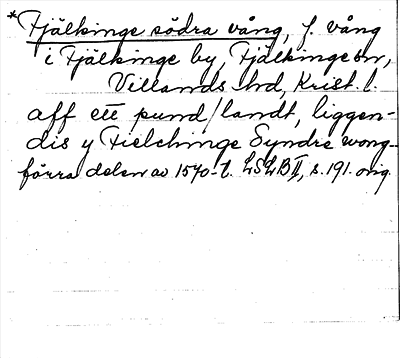 *Fjälkinge södra vång, f. vång
i Fjälkinge by, Fjälkinge sn,
Villands hd, Krist. l.
aff ett pund/landt, liggen-
dis y Fielchinge Syndre wong –
förra delen av 1570-t. LSLB II, s. 191. orig.